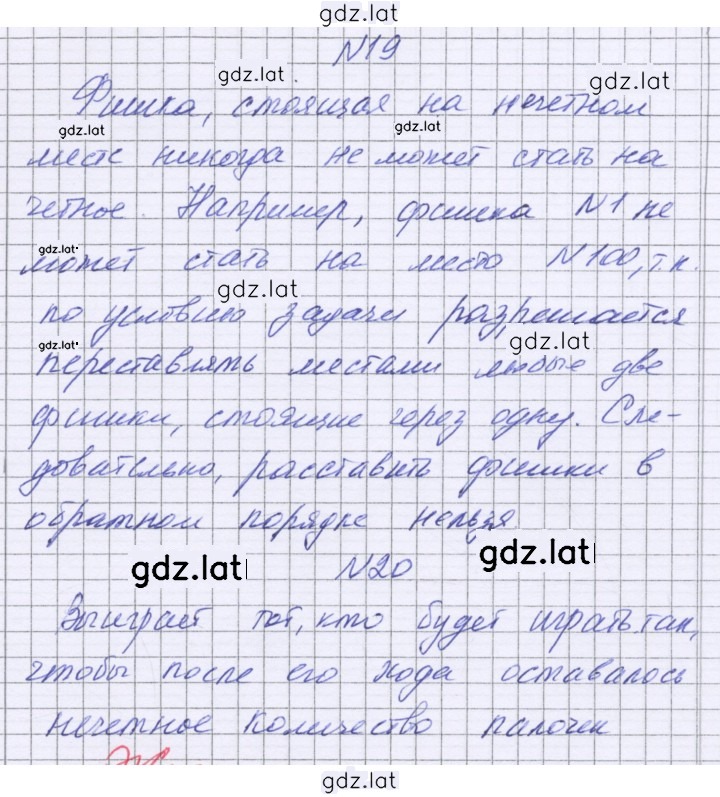 gdz.lat
№19
gdz.lat gdz.lat
Фишка, стоящая на нечетном
gdz.lat gdz.lat
месте никогда не может стать на
четное. Например, фишка №1 не
gdz.lat
может стать на место №100, т.к.
gdz.lat
по условию задачи разрешается
gdz.lat gdz.lat
переставлять местами любые две
фишки, стоящие через одну. Сле-
довательно, расставить фишки в
обратном порядке нельзя
gdz.lat gdz.lat
№20
Выиграет тот, кто будет играть так,
чтобы после его хода оставалось
нечетное количество палочек
gdz.lat